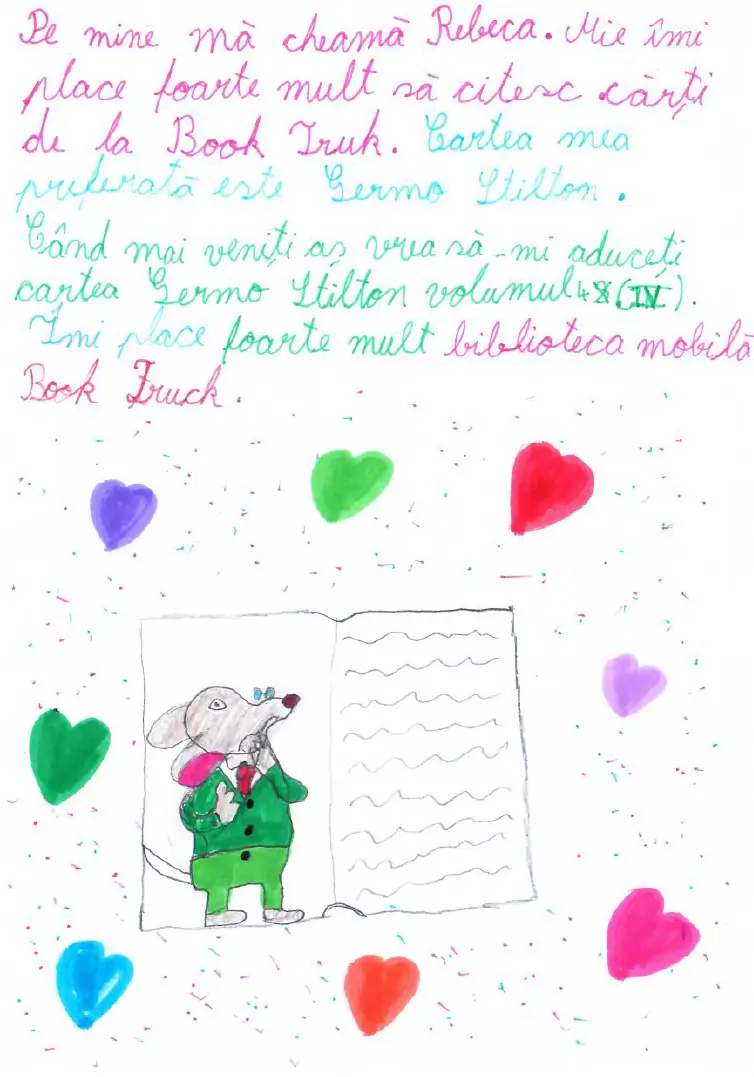 Pe mine mă cheamă Rebeca. Mie îmi
place foarte mult să citesc cărți
de la Book Truk. Cartea mea
preferată este Germo Stilton.
Când mai veniți aș vrea să-mi aduceți
cartea Germo Stilton volumul 48 (IV).
Imi place foarte mult biblioteca mobilă
Book Truck.